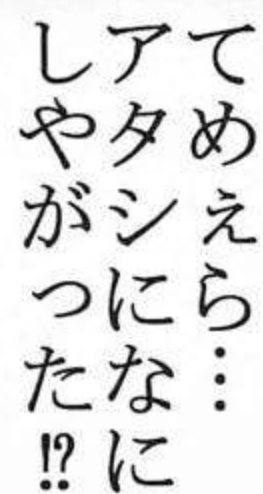 てめぇら…
アタシになに
しやがった⁉